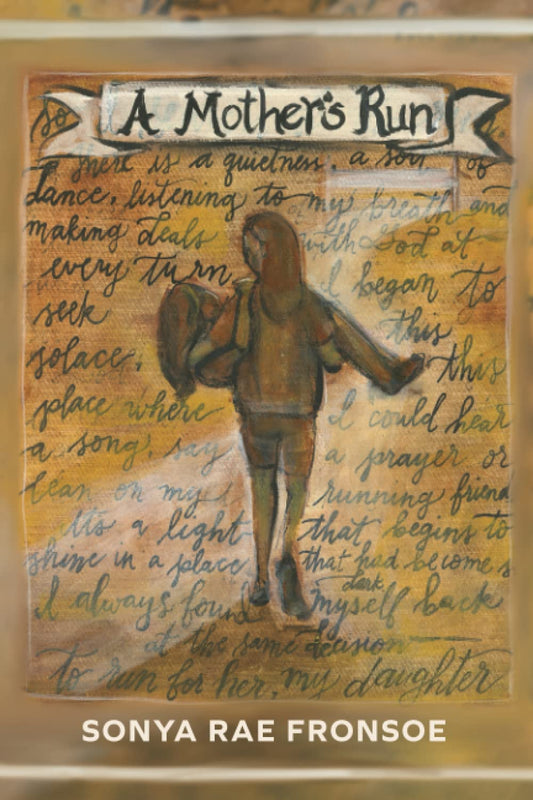 A Mother's Run
so
there is a quietness, a sort of
dance, listening to my breath and
making deals with God at
every turn I began to
seek this
solace, this
place where I could hear
a song, say a prayer or
lean on my running friend
Its a light that begins to
shine in a place that had become s
dark
I always found myself back
at the same decision
to run for her, my daughter
SONYA RAE FRONSOE